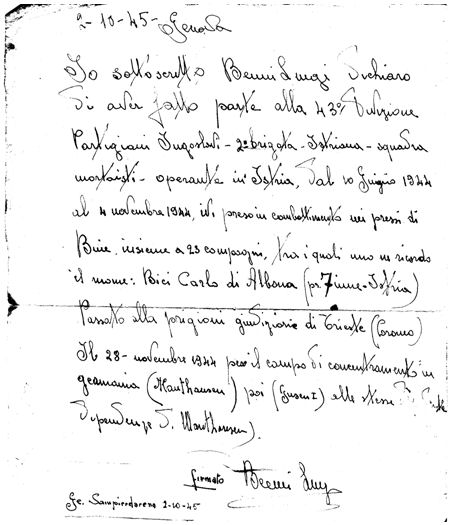 2-10-45 Genova
Io sottoscritto Benni Luigi Dichiaro
di aver fatto parte alla 43º Divisione
Partigiani Jugoslavi - 2º brigata - Istriana - squadra
mortaisti - operante in Istria, dal 10 Giugno 1944
al 4 novembre 1944, ivi preso in combattimento nei pressi di
Buie, insieme a 23 compagni, tra i quali uno mi ricordo
il nome: Bici Carlo di Albona (pr. - Istria)
Passato alla prigioni giudiziarie di Trieste (Coroneo)
Il 28 - novembre 1944 per il campo di concentramento in
germania (Mauthausen) poi (Gusen I) alle stesse
dipendenze d. Mauthausen).
firmato Benni Luigi
Ge. Sampierdarena 2-10-45